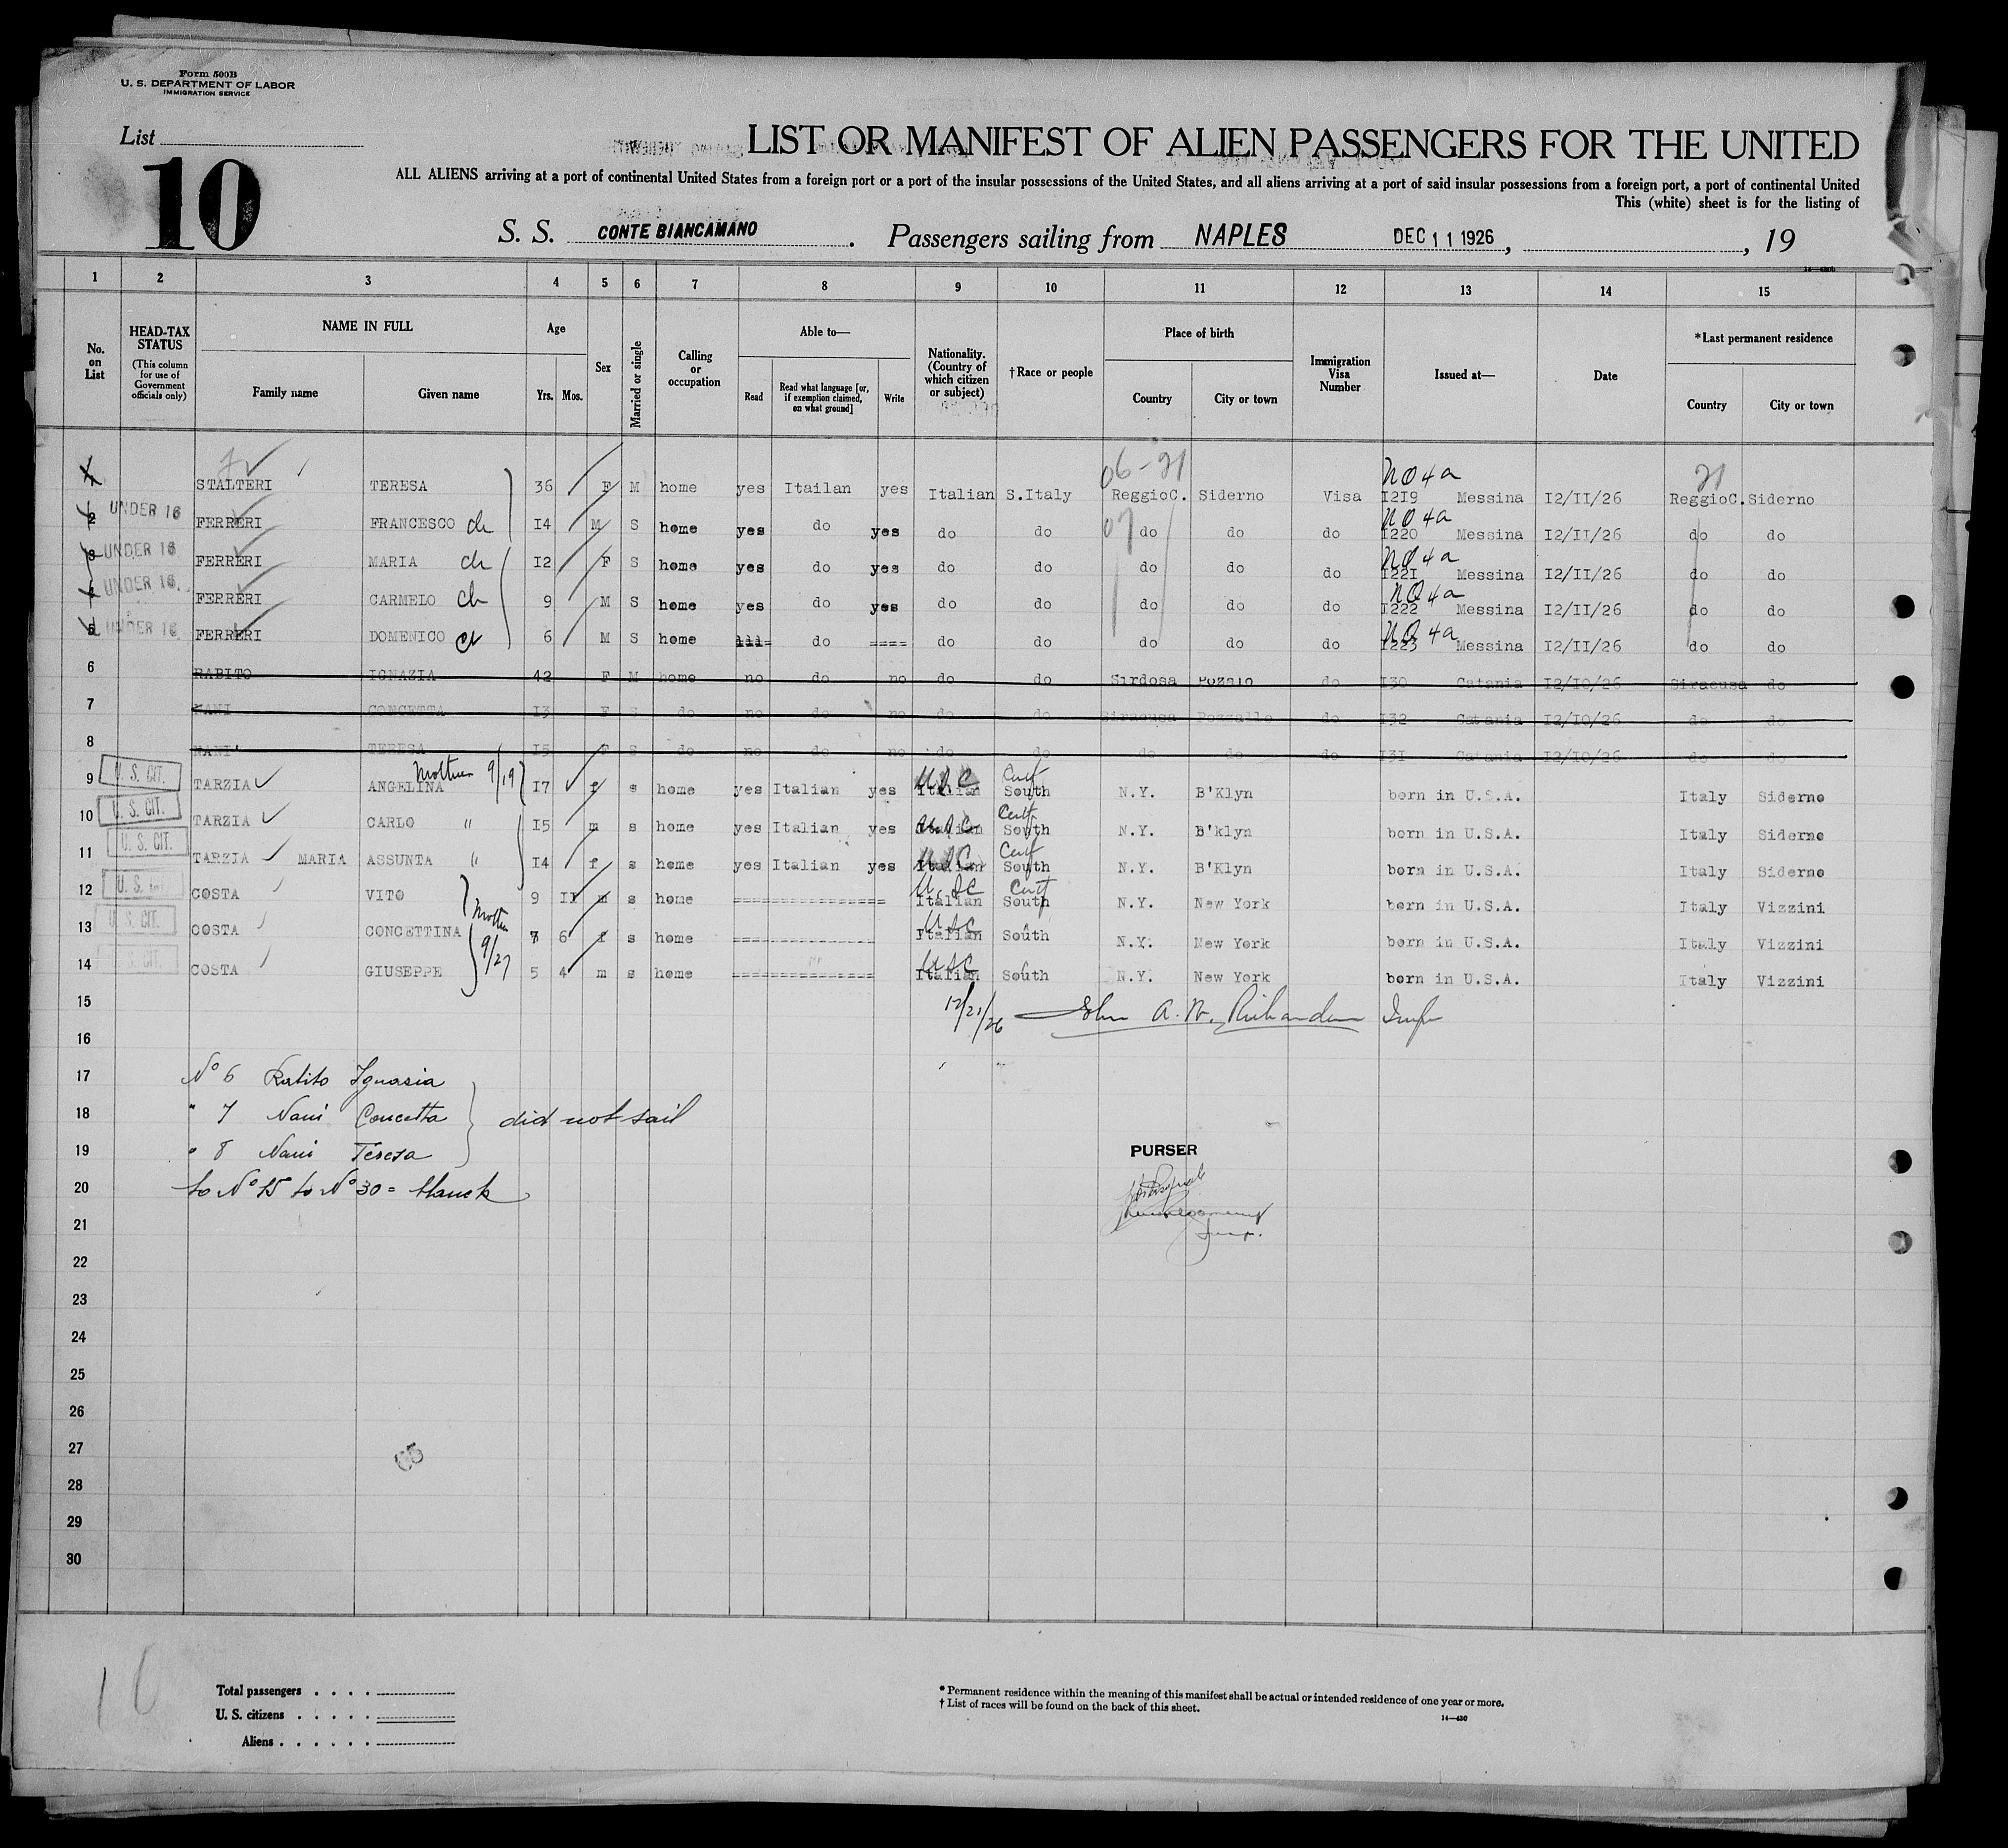 Form 500B
U. S. DEPARTMENT OF LABOR
IMMIGRATION SERVICE
List
10
LIST OR MANIFEST OF ALIEN PASSENGERS FOR THE UNITED
ALL ALIENS arriving at a port of continental United States from a foreign port or a port of the insular possessions of the United States, and all aliens arriving at a port of said insular possessions from a foreign port, a port of continental United
This (white) sheet is for the listing of
S. S. CONTE BIANCAMANO. Passengers sailing from NAPLES DEC 11 1926, , 19
1 2 3 4 5 6 7 8 9 10 11 12 13 14 15
No. on List
HEAD-TAX STATUS
(This column for use of Government officials only)
NAME IN FULL
Family name Given name
Age
Yrs. Mos.
Sex
Married or single
Calling or occupation
Able to—
Read Read what language [or, if exemption claimed, on what ground] Write
Nationality. (Country of which citizen or subject)
†Race or people
Place of birth
Country City or town
Immigration Visa Number
Issued at—
Date
*Last permanent residence
Country City or town
06-21 NO 4a 21
STALTERI TERESA 36 F M home yes Itailan yes Italian S.Italy ReggioC. Siderno Visa I2I9 Messina I2/II/26 ReggioC. Siderno
2 UNDER 16 FERRERI FRANCESCO ch I4 M S home yes do yes do do 07 do do do NO 4a I220 Messina I2/II/26 do do
3 UNDER 16 FERRERI MARIA ch I2 F S home yes do yes do do do do do NO 4a I22I Messina I2/II/26 do do
4 UNDER 16 FERRERI CARMELO ch 9 M S home yes do yes do do do do do NO 4a I222 Messina I2/II/26 do do
5 UNDER 16 FERRERI DOMENICO ch 6 M S home do ==== do do do do do NO 4a I223 Messina I2/II/26 do do
6 RABITO IGNAZIA 42 F M home no do no do do Sirdosa Pozalo do I30 Catania I2/I0/26 Siracusa do
7 NANI CONCETTA I3 F S do no do no do do Siracusa Pozzallo do I32 Catania I2/I0/26 do do
8 NANI' TERESA I5 F S do no do no do do do do do I3I Catania I2/I0/26 do do
9 U. S. CIT. TARZIA ANGELINA Mother 9/19 I7 f s home yes Italian yes Italian USC South Cert N.Y. B'Klyn born in U.S.A. Italy Siderno
10 U. S. CIT. TARZIA CARLO " I5 m s home yes Italian yes Italian USC South Cert N.Y. B'klyn born in U.S.A. Italy Siderno
11 U. S. CIT. TARZIA MARIA ASSUNTA " I4 f s home yes Italian yes Italian USC South Cert N.Y. B'Klyn born in U.S.A. Italy Siderno
12 U. S. CIT. COSTA VITO 9 II m s home ================ Italian USC South Cert N.Y. New York born in U.S.A. Italy Vizzini
13 U. S. CIT. COSTA CONCETTINA Mother 9/27 7 6 f s home ================ Italian USC South N.Y. New York born in U.S.A. Italy Vizzini
14 U. S. CIT. COSTA GIUSEPPE 5 4 m s home ================ Italian USC South N.Y. New York born in U.S.A. Italy Vizzini
15 12/21/26 John A. W. Richardson Insp
16
17 No 6 Rabito Ignasia
18 " 7 Nani Concetta did not sail
19 " 8 Nani Teresa
PURSER
20 to No 15 to No 30 = blanck
21 Insp.
22
23
24
25
26
27
28
29
30
10
Total passengers
U. S. citizens
Aliens
* Permanent residence within the meaning of this manifest shall be actual or intended residence of one year or more.
† List of races will be found on the back of this sheet.
14—430